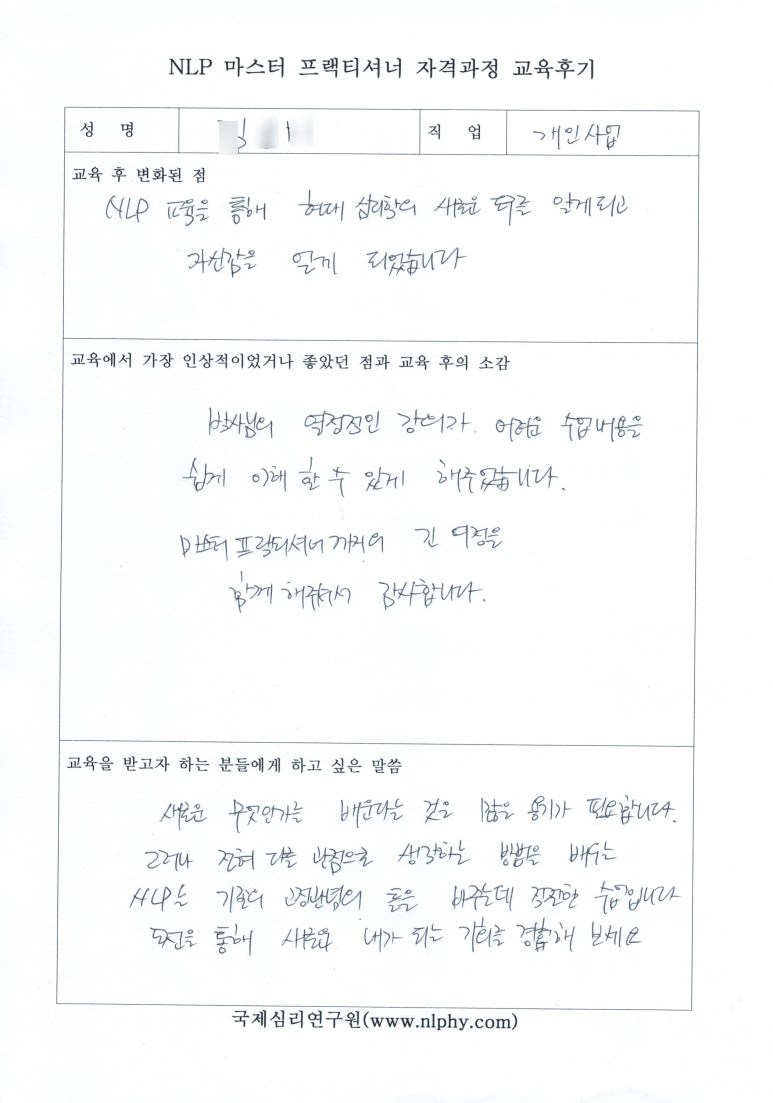 NLP 마스터 프랙티셔너 자격과정 교육후기
성 명 직 업 개인사업
교육 후 변화된 점
NLP 교육을 통해 현대 심리학의 새로운 를 알게되고
자신감을 얻게 되었습니다
교육에서 가장 인상적이었거나 좋았던 점과 교육 후의 소감
박사님의 열정적인 강의가 어려운 수업내용을
쉽게 이해 할 수 있게 해주었습니다.
마스터 프랙티셔너 까지의 긴 여정을
함께 해주셔서 감사합니다.
교육을 받고자 하는 분들에게 하고 싶은 말씀
새로운 무엇인가를 배운다는 것은 많은 용기가 필요합니다.
그러나 전혀 다른 관점으로 생각하는 방법을 배우는
NLP는 기존의 고정관념의 틀을 바꾸는데 적절한 수업입니다
도전을 통해 새로운 내가 되는 기회를 경험해 보세요
국제심리연구원(www.nlphy.com)